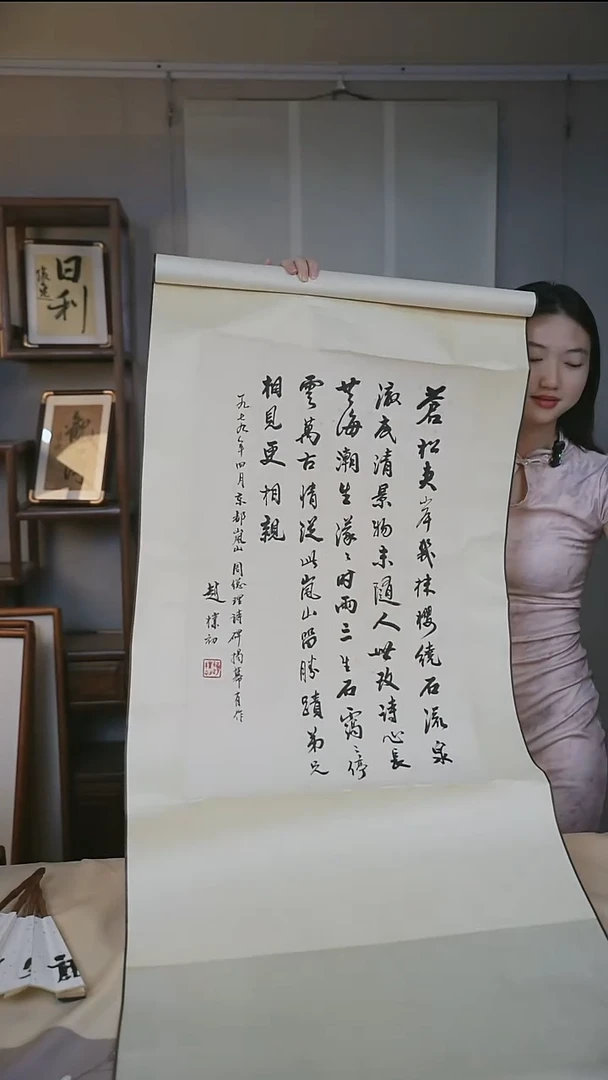 蒼松夾岸幾株櫻繞石流泉
澈底清景物未隨人世改詩心長
共海潮生濛〻時雨三生石靄〻停
雲萬古情從此嵐山留勝蹟弟兄
相見更相親
一九七九年四月京都嵐山周總理詩碑揭幕有作
趙樸初
日利